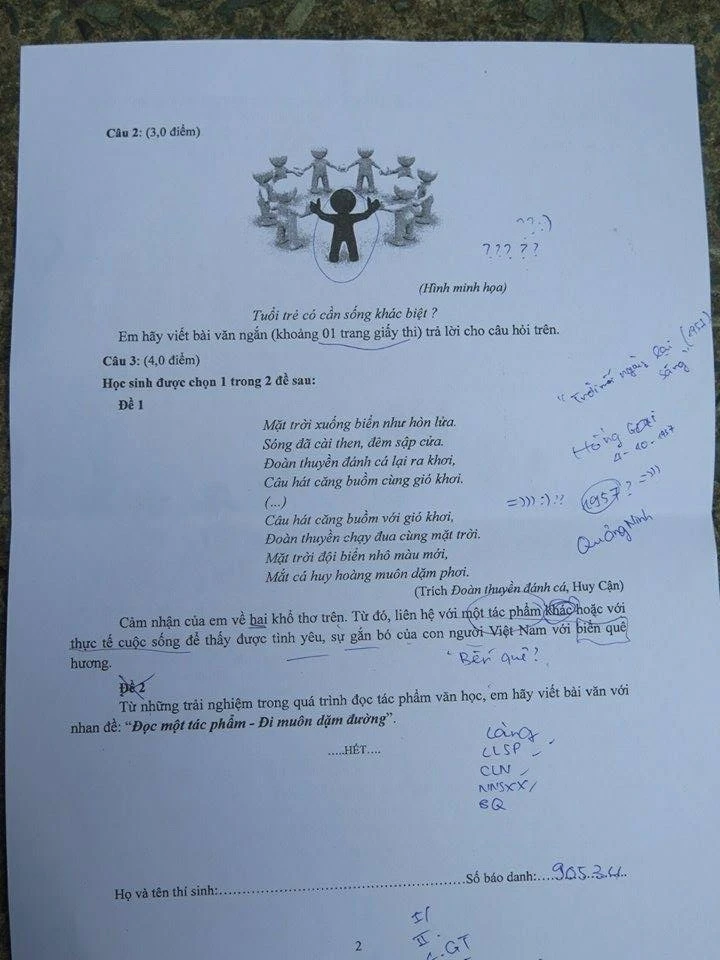 Câu 2: (3,0 điểm)
??:)
??? ??
(Hình minh họa)
Tuổi trẻ có cần sống khác biệt ?
Em hãy viết bài văn ngắn (khoảng 01 trang giấy thi) trả lời cho câu hỏi trên.
Câu 3: (4,0 điểm)
Học sinh được chọn 1 trong 2 đề sau:
Đề 1
"Trời mỗi ngày lại sáng"
Mặt trời xuống biển như hòn lửa.
Sóng đã cài then, đêm sập cửa.
Đoàn thuyền đánh cá lại ra khơi,
Câu hát căng buồm cùng gió khơi.
(...)
Câu hát căng buồm với gió khơi,
Đoàn thuyền chạy đua cùng mặt trời.
Mặt trời đội biển nhô màu mới,
Mắt cá huy hoàng muôn dặm phơi.
Hồng Gai
4-10-1957
=))) :) !!
1957 ? =)))
Quảng Ninh
(Trích Đoàn thuyền đánh cá, Huy Cận)
Cảm nhận của em về hai khổ thơ trên. Từ đó, liên hệ với một tác phẩm khác hoặc với
thực tế cuộc sống để thấy được tình yêu, sự gắn bó của con người Việt Nam với biển quê
hương.
"Bến quê?
Đề 2
Từ những trải nghiệm trong quá trình đọc tác phẩm văn học, em hãy viết bài văn với
nhan đề: "Đọc một tác phẩm - Đi muôn dặm đường".
.....HẾT....
Làng
LLSP
CLN
NNSXX
BQ
Họ và tên thí sinh:..........................................................Số báo danh:....905.34..
I/
II.
1. GT
2